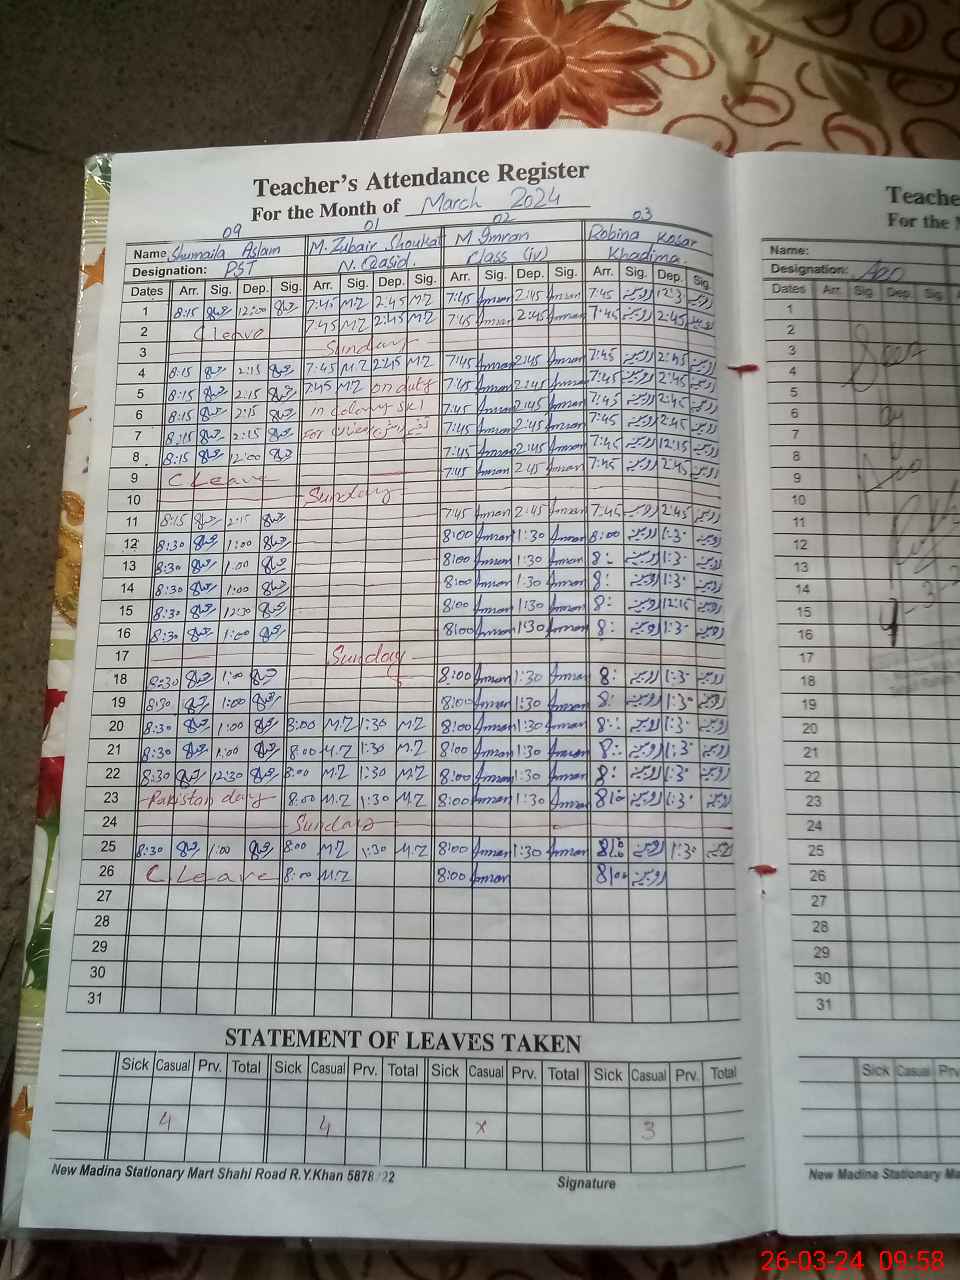 Teacher's Attendance Register
For the Month of March 2024
09 01 02 03
Name Shumaila Aslam M. Zubair Shoukat M Imran Robina Kosar
Designation: PST N. Qasid. Class (iv) Khadima.
Dates Arr. Sig. Dep. Sig. Arr. Sig. Dep. Sig. Arr. Sig. Dep. Sig. Arr. Sig. Dep. Sig.
1 8:15 12:00 7:45 M.Z 2:45 M.Z 7:45 Imran 2:45 Imran 7:45 روبینہ 12:3 روبینہ
2 C Leave 7:45 M.Z 2:45 M.Z 7:45 Imran 2:45 Imran 7:45 روبینہ 2:45 روبینہ
3 Sunday
4 8:15 2:15 7:45 M.Z 2:45 M.Z 7:45 Imran 2:45 Imran 7:45 روبینہ 2:45 روبینہ
5 8:15 2:15 7:45 M.Z on duty 7:45 Imran 2:45 Imran 7:45 روبینہ 2:45 روبینہ
6 8:15 2:15 in colony 7:45 Imran 2:45 Imran 7:45 روبینہ 2:45 روبینہ
7 8:15 2:15 For 7:45 Imran 2:45 Imran 7:45 روبینہ 2:45 روبینہ
8 8:15 12:00 7:45 Imran 2:45 Imran 7:45 روبینہ 12:15 روبینہ
9 C Leave 7:45 Imran 2:45 Imran 7:45 روبینہ 2:45 روبینہ
10 Sunday
11 8:15 2:15 7:45 Imran 2:45 Imran 7:45 روبینہ 2:45 روبینہ
12 8:30 1:00 8:00 Imran 1:30 Imran 8:00 روبینہ 1:30 روبینہ
13 8:30 1:00 8:00 Imran 1:30 Imran 8: روبینہ 1:30 روبینہ
14 8:30 1:00 8:00 Imran 1:30 Imran 8: روبینہ 1:30 روبینہ
15 8:30 12:30 8:00 Imran 1:30 Imran 8: روبینہ 12:15 روبینہ
16 8:30 1:00 8:00 Imran 1:30 Imran 8: روبینہ 1:30 روبینہ
17 Sunday
18 8:30 1:00 8:00 Imran 1:30 Imran 8: روبینہ 1:30 روبینہ
19 8:30 1:00 8:00 Imran 1:30 Imran 8: روبینہ 1:30 روبینہ
20 8:30 1:00 8:00 M.Z 1:30 M.Z 8:00 Imran 1:30 Imran 8: روبینہ 1:30 روبینہ
21 8:30 1:00 8:00 M.Z 1:30 M.Z 8:00 Imran 1:30 Imran 8: روبینہ 1:30 روبینہ
22 8:30 12:30 8:00 M.Z 1:30 M.Z 8:00 Imran 1:30 Imran 8: روبینہ 1:30 روبینہ
23 Pakistan day 8:00 M.Z 1:30 M.Z 8:00 Imran 1:30 Imran 8:00 روبینہ 1:30 روبینہ
24 Sunday
25 8:30 1:00 8:00 M.Z 1:30 M.Z 8:00 Imran 1:30 Imran 8:00 روبینہ 1:30 روبینہ
26 C Leave 8:00 M.Z 8:00 Imran 8:00 روبینہ
27
28
29
30
31
STATEMENT OF LEAVES TAKEN
Sick Casual Prv. Total Sick Casual Prv. Total Sick Casual Prv. Total Sick Casual Prv. Total
4 4 x 3
New Madina Stationary Mart Shahi Road R.Y.Khan 5878/22
Signature
Teache
For the M
Name:
Designation:
Dates Arr. Sig. Dep. Sig.
1
2
3
4
5
6
7
8
9
10
11
12
13
14
15
16
17
18
19
20
21
22
23
24
25
26
27
28
29
30
31
Sick Casual Prv
New Madina Stationary Ma
26-03-24 09:58